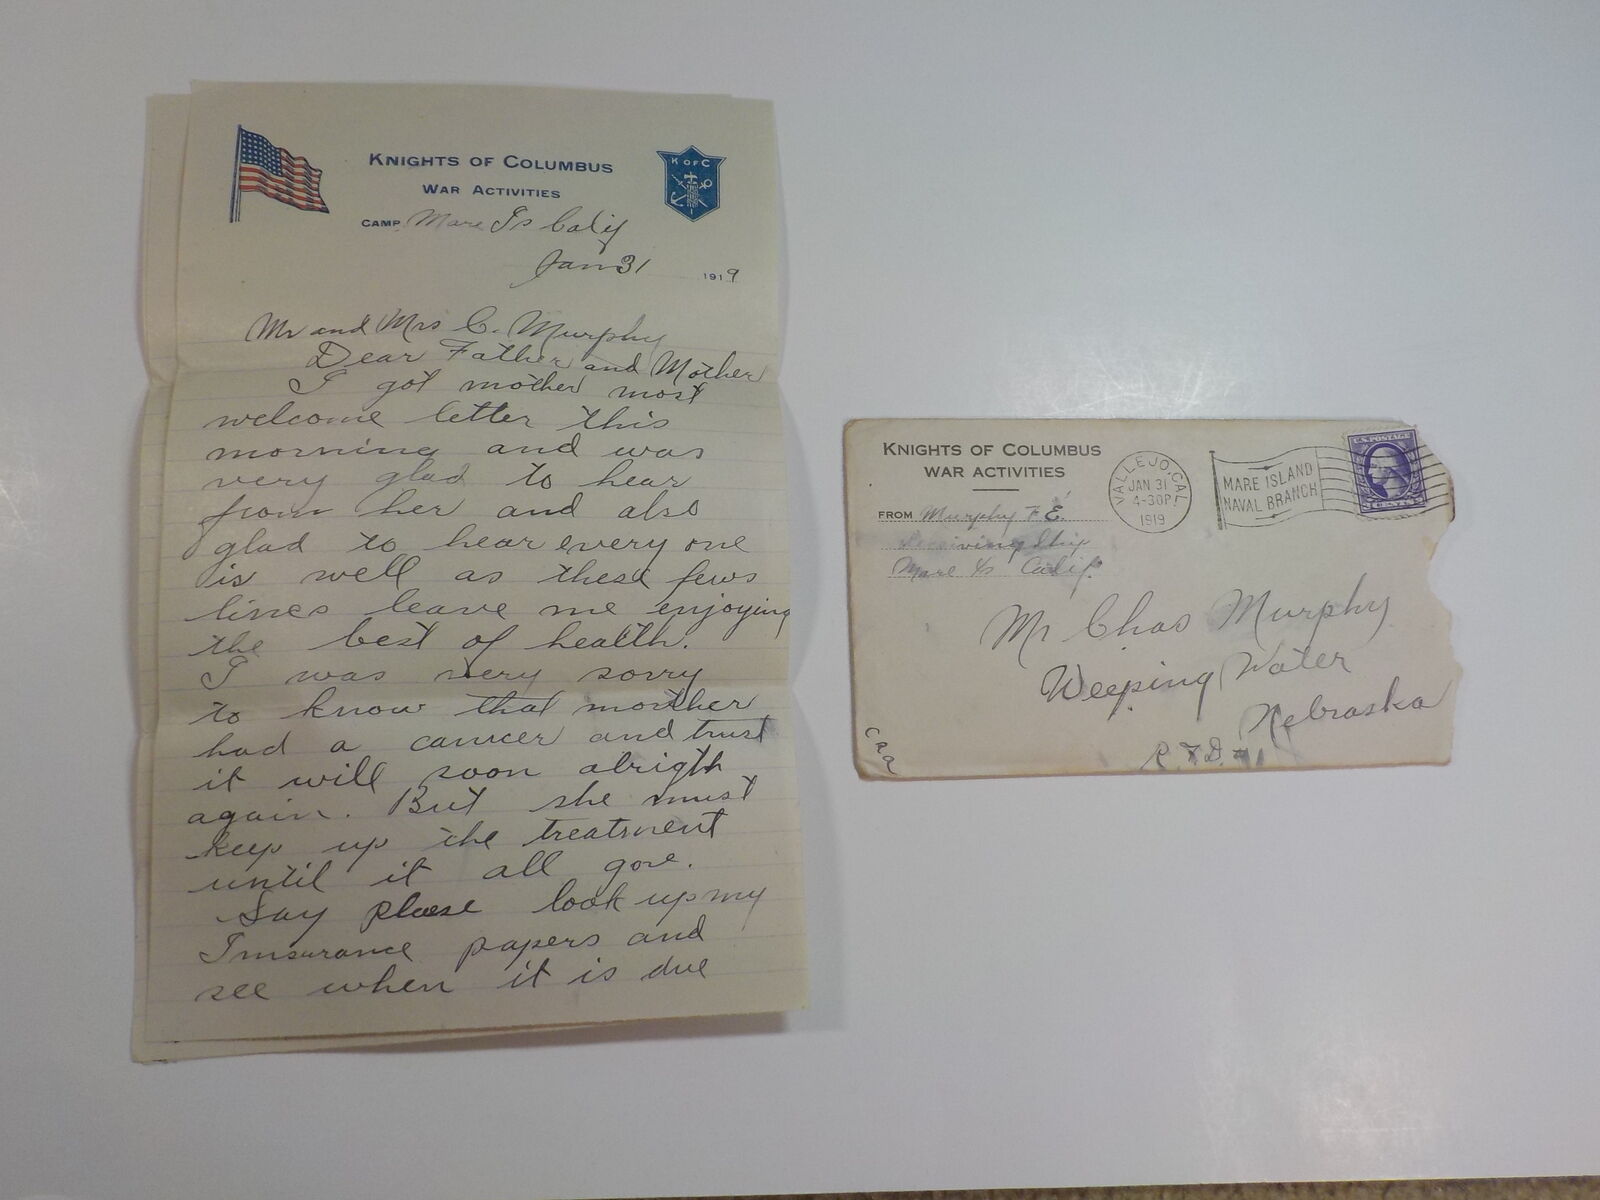 KNIGHTS OF COLUMBUS
WAR ACTIVITIES
K OF C
CAMP Mare Is Calif
Jan 31 1919
Mr and Mrs C. Murphy
Dear Father and Mother
I got mother most
welcome letter this
morning and was
very glad to hear
from her and also
glad to hear every one
is well as these fews
lines leave me enjoying
the best of health.
I was very sorry
to know that mother
had a cancer and trust
it will soon alrigth
again. But she must
keep up the treatment
until it all gone.
Say please look up my
Insurance papers and
see when it is due
KNIGHTS OF COLUMBUS
WAR ACTIVITIES
FROM Murphy F E
Receiving Ship
Mare Is Calif.
VALLEJO, CAL.
JAN 31
4-30P
1919
MARE ISLAND
NAVAL BRANCH
U.S. POSTAGE
Mr Chas Murphy
Weeping Water
Nebraska
R.F.D. #1